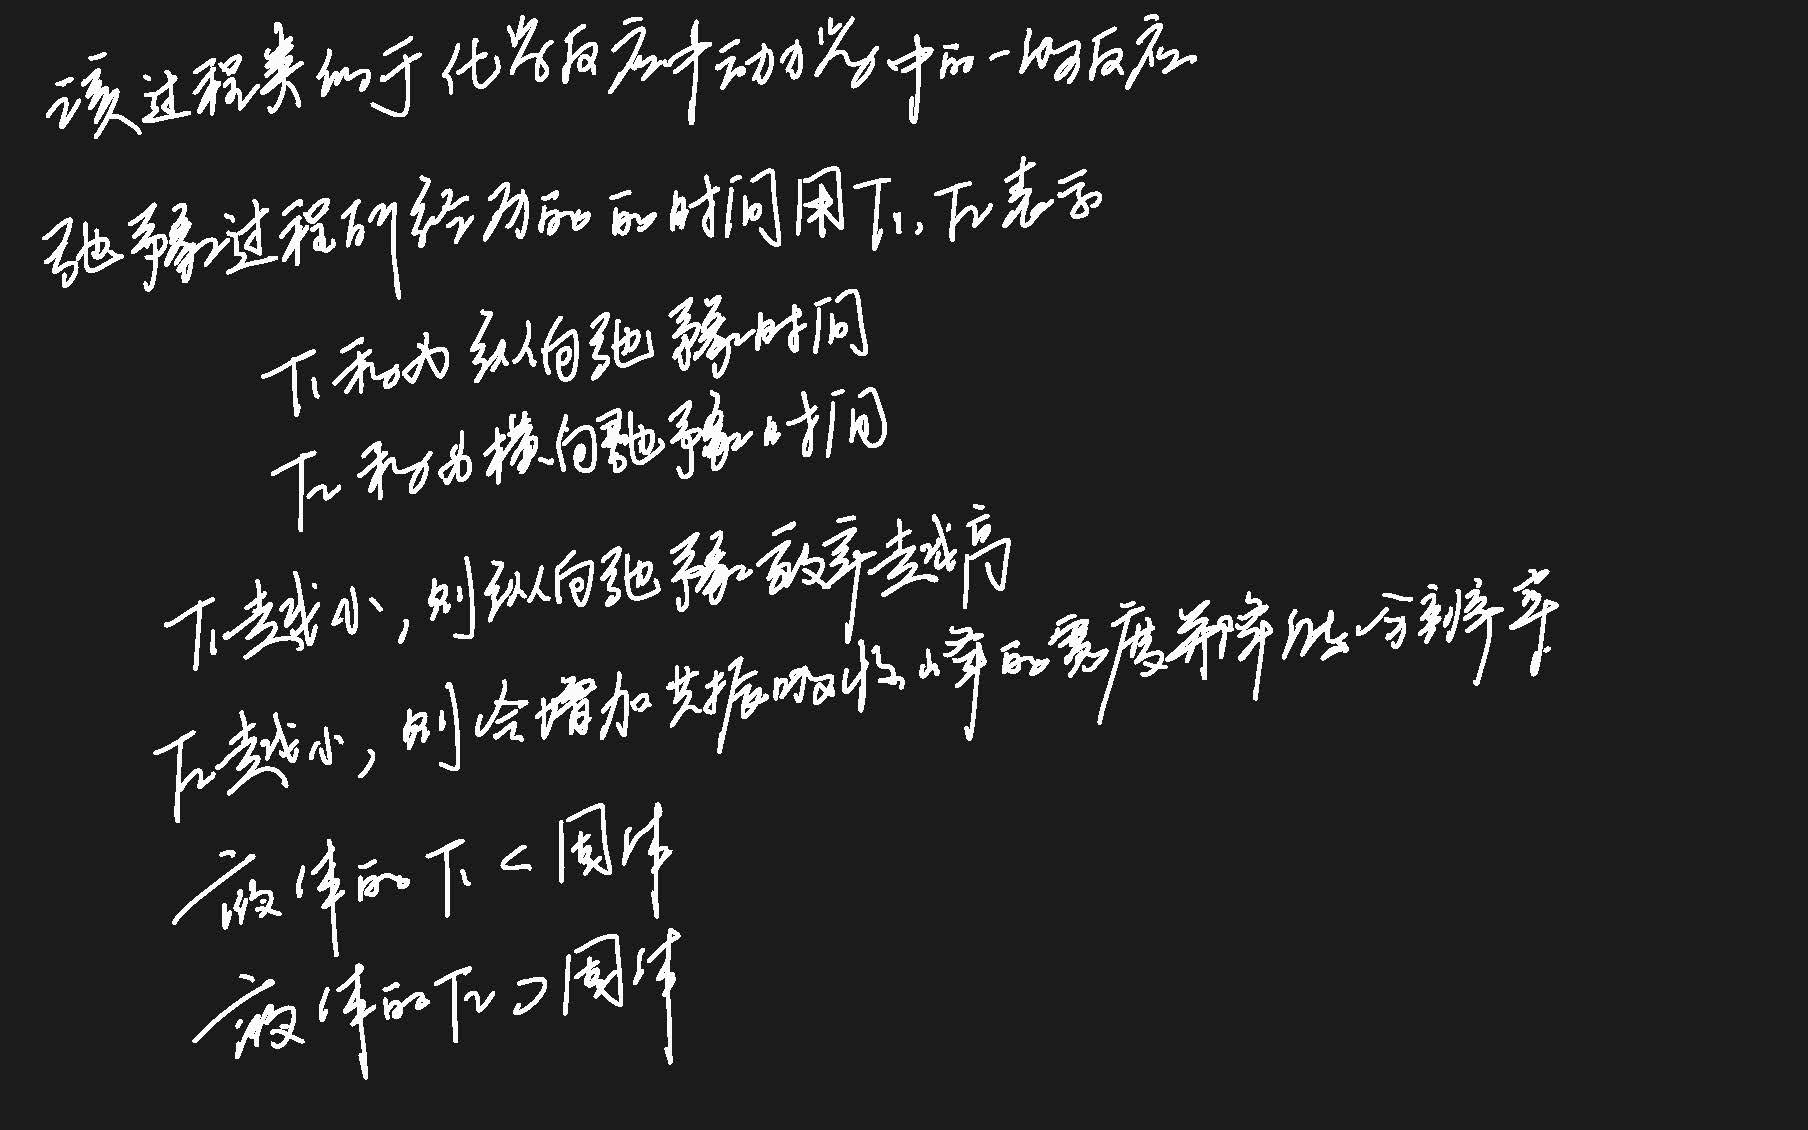 该过程类似于化学反应中动力学中的一级反应
弛豫过程所经历的的时间用T₁,T₂表示
T₁称为纵向弛豫时间
T₂称为横向弛豫时间
T₁越小,则纵向弛豫效率越高
T₂越小,则会增加共振吸收峰的宽度并降低分辨率
液体的T₁<固体
液体的T₂>固体